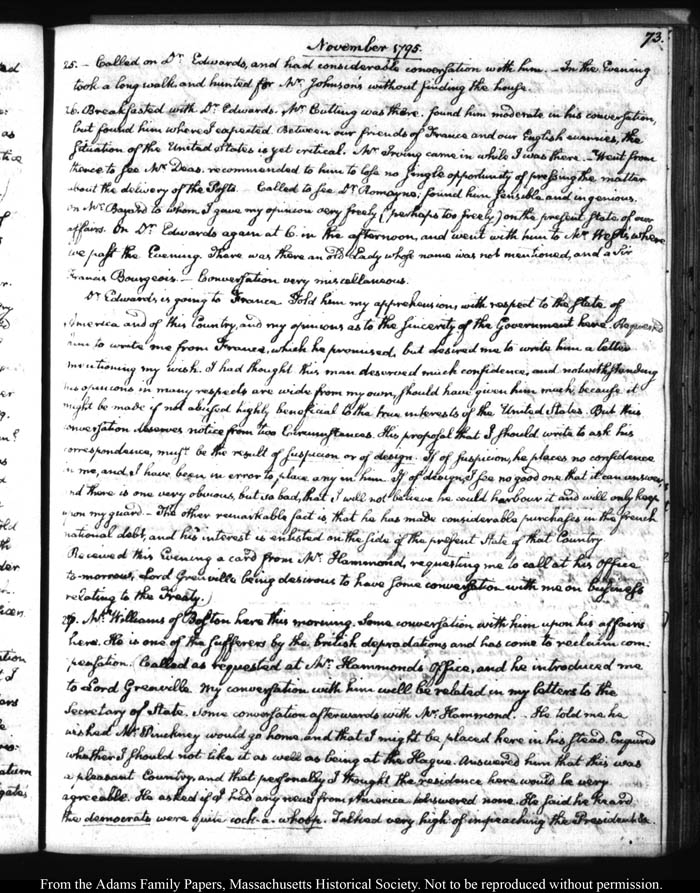 73.
November 1795.
25. — Called on Dr. Edwards, and had considerable conversation with him. — In the Evening
took a long walk, and hunted for Mr. Johnson's without finding the house.
26. Breakfasted with Dr. Edwards. Mr. Cutting was there. found him moderate in his conversation,
but found him where I expected. Between our friends of France and our English enemies, the
situation of the United States is yet critical. Mr. Irving came in while I was there. — Went from
thence to see Mr. Deas. recommended to him to lose no single opportunity of pressing the matter
about the delivery of the Posts. Called to see Dr. Romayne, found him sensible and ingenious.
on Mr. Bayard to whom I gave my opinion very freely (perhaps too freely) on the present State of our
affairs. On Dr. Edwards again at 6. in the afternoon, and went with him to Mr. West's where
we past the Evening. There was there an old Lady whose name was not mentioned, and a Sir
Francis Bourgeois. — Conversation very miscellaneous.
Dr. Edwards is going to France. Told him my apprehensions with respect to the State of
America and of this Country, and my opinions as to the sincerity of the Government here. Requested
him to write me from France, which he promised, but desired me to write him a letter
mentioning my wish. I had thought this man deserved much confidence, and notwithstanding
his opinions in many respects are wide from my own, should have given him much, because it
might be made if not abused highly beneficial to the true interests of the United States. But this
conversation deserves notice from two Circumstances. His proposal that I should write to ask his
correspondence, must be the result of suspicion or of design. If of suspicion, he places no confidence
in me, and I have been in error to place any in him. If of design, I see no good one that it can answer,
and there is one very obvious, but so bad, that I will not believe he could harbour it and will only keep
upon my guard — The other remarkable fact is that he has made considerable purchases in the french
national debt, and his interest is enlisted on the side of the present State of that Country.
Received this Evening a card from Mr. Hammond, requesting me to call at his Office
to-morrow, Lord Grenville being desirous to have some conversation with me on business
relating to the Treaty.)
27. Mr. Williams of Boston here this morning. Some conversation with him upon his affairs
here. He is one of the sufferers by the british depredations and has come to reclaim com-
pensation. Called as requested at Mr. Hammond's Office, and he introduced me
to Lord Grenville. My conversation with him will be related in my letters to the
Secretary of State. Some conversation afterwards with Mr. Hammond. — He told me he
wished Mr. Pinckney would go home, and that I might be placed here in his stead. Enquired
whether I should not like it as well as being at the Hague. Answered him that this was
a pleasant Country, and that personally I thought the residence here would be very
agreeable. He asked if I had any news from America. Answered none. He said he heard
the democrats were quite cock-a-whoop. Talked very high of impeaching the President &c.
From the Adams Family Papers, Massachusetts Historical Society. Not to be reproduced without permission.